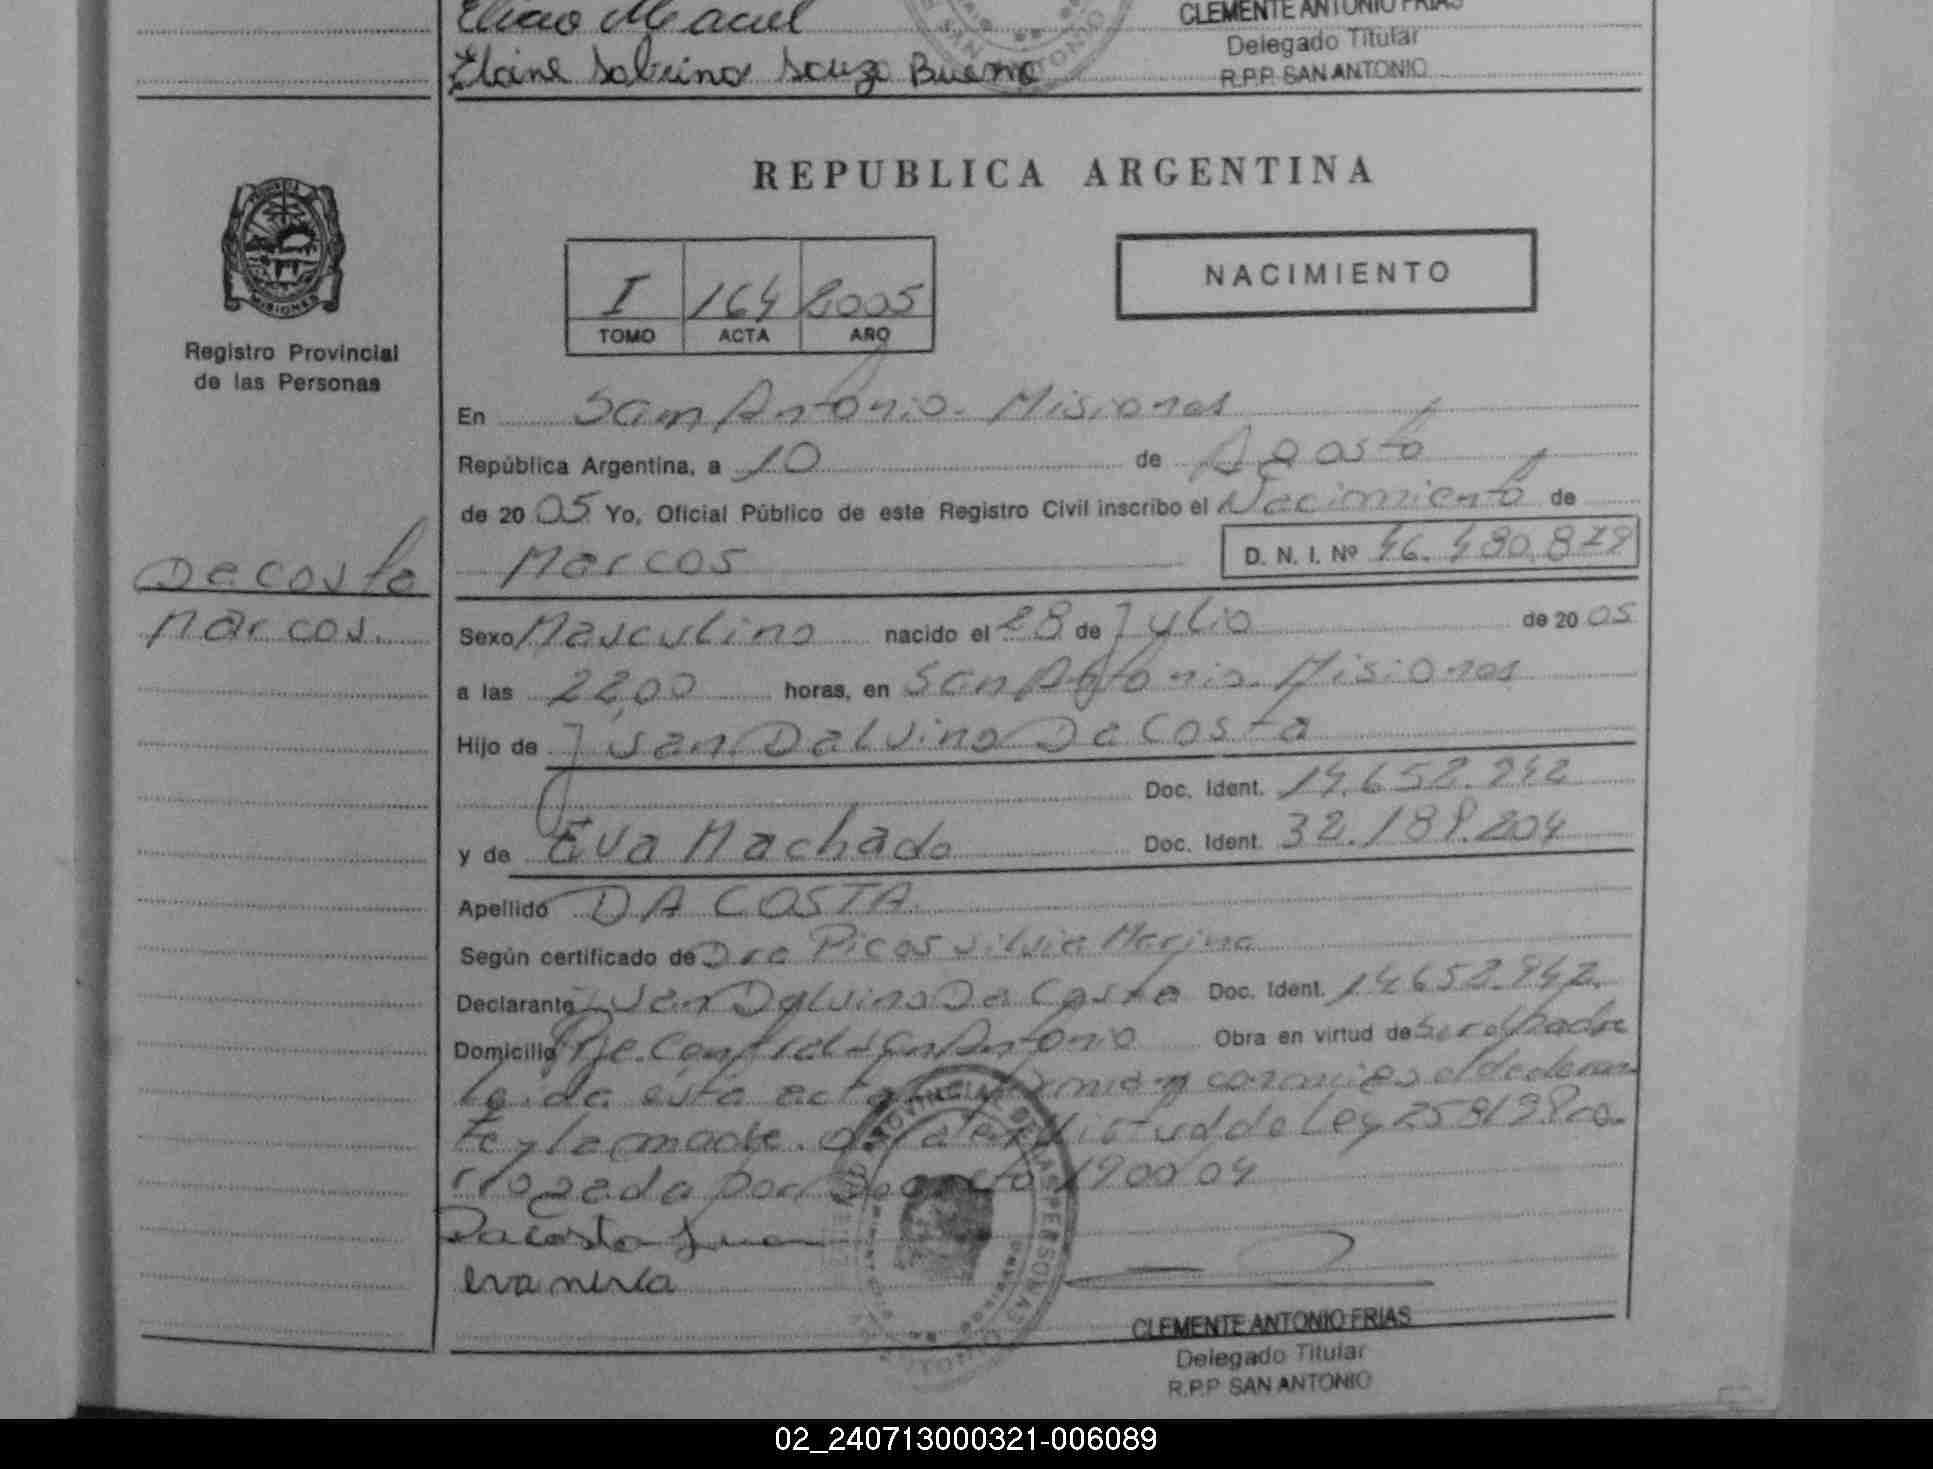 CLEMENTE ANTONIO FRIAS
Delegado Titular
Elaine Sabrina Souza Bueno
R.P.P. SAN ANTONIO
MISIONES
Registro Provincial
de las Personas
REPUBLICA ARGENTINA
I 164 2005
TOMO ACTA AÑO
NACIMIENTO
En San Antonio - Misiones
República Argentina, a 10 de Agosto
de 20 05 Yo, Oficial Público de este Registro Civil inscribo el Nacimiento de
Marcos
D. N. I. Nº 46.480.879
Da Costa
Marcos.
Sexo Masculino nacido el 28 de Julio de 20 05
a las 22,00 horas, en San Antonio - Misiones
Hijo de Juan Dalvino Da Costa
Doc. Ident. 14.652.942
y de Eva Machado Doc. Ident. 32.189.204
Apellido DA COSTA
Según certificado de Dra Picos Silvia Marina
Declarante Juan Dalvino Da Costa Doc. Ident. 14.652.942.
Domicilio Pje. Central - San Antonio Obra en virtud de ser el padre
Leida esta acta firman conmigo el declaran
te y la madre. en virtud de Ley 25819
por Decreto 1900 04
Da costa Juan
eva
CLEMENTE ANTONIO FRIAS
Delegado Titular
R.P.P. SAN ANTONIO
02_240713000321-006089